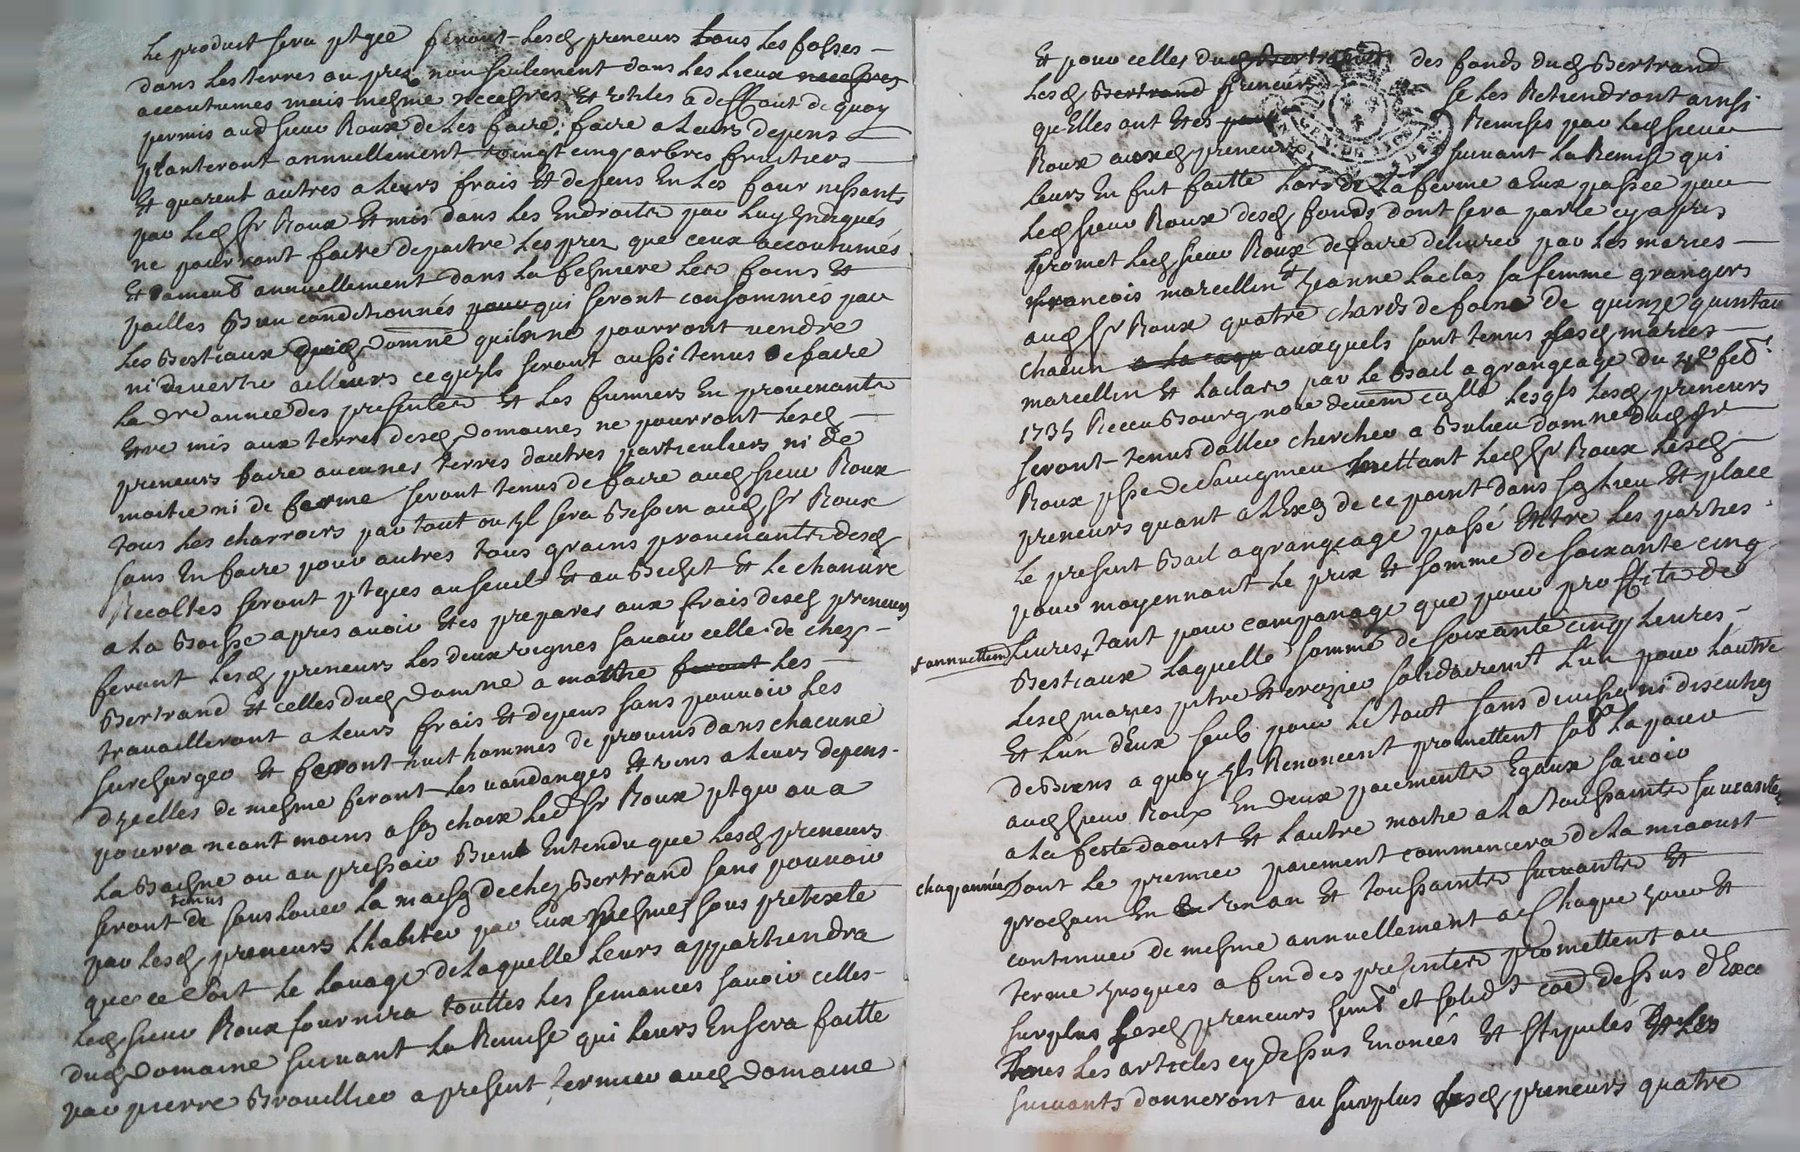 Le produit sera ptgée feront lesd preneurs tous les fosses
dans les terres ou prez non seulement dans les lieux necessres
accoutumes mais mesme necessres et utiles a deffaut de quoy
permis aud sieur Roux de les faire faire a leurs depens
planteront annuellement vingt cinq arbres fruitiers
et quarent autres a leurs frais et depens en les fournissants
par led Sr Roux et mis dans les endroits par luy indiqués
ne pourront faire depaitre les prez que ceux accoutumés
et annuellement dans la feniere les foins et
pailles bien conditionnés pour qui seront consommés par
les bestiaux dud domne quils ne pourront vendre
ni divertir ailleurs ce quyls seront aussi tenus de faire
la dre année des presentes et les fumiers en provenants
etre mis aux terres desd domaines ne pourront lesd
preneurs faire aucunes terres d'autres particuliers ni de
moitie ni de ferme seront tenus de faire aud sieur Roux
tous les charrois par tout ou yl sera besoin aud Sr Roux
sans en faire pour autres tous grains provenants desd
Recoltes seront ptgées au seuil et au bichet et le chanvre
a la baisse apres avoir etes preparés aux frais desd preneurs
feront lesd preneurs les deux vignes savoir celle de chez
Bertrand et celles dud domne a moitie feront les
travailleront a leurs frais et depens sans pouvoir les
surcharger et feront huit hommes de provins dans chacune
dycelles de mesme feront les vandanges et vins a leurs depens
pourra neant moins a son choix led Sr Roux ptger ou a
la baigne ou au pressoir bien entendu que lesd preneurs
tenus
seront de sous louer la maison de chez Bertrand sans pouvoir
par lesd preneurs lhabiter par eux mesmes sous pretexte
que ce soit le louage de laquelle leurs appartiendra
led sieur Roux fournira touttes les semances savoir celles
dud domaine suivant la Remise qui leurs en sera faitte
par pierre Brouillier a present fermier aud domaine
Et pour celles dud Bertrand des fonds dud Bertrand
lesd Bertrand preneurs se les Retiendront ainsi
qu'Elles ont etes Remises par led sieur
Roux auxd preneurs suivant la Remise qui
leurs en fut faitte lors de la ferme a eux passée par
led sieur Roux desd fonds dont sera parlé cy apres
promet led sieur Roux de faire delivrer par les maries
francois marcellin et Jeanne Laclas sa femme grangers
aud Sr Roux quatre chards de foin de quinze quintau
chacun auxquels sont tenus lesd maries
marcellin et Laclas par le bail a grangeage du febr
1735 Receu Bourg nore lesqls lesd preneurs
seront tenus daller chercher a Bulieu domne dud Sr
Roux psse de Savigneu mettant led Sr Roux lesd
preneurs quant a lexon de ce point dans son lieu et place
le present bail a grangeage passé entre les parties
pour moyennant le prix et somme de soixante cinq
+annuellem livres + tant pour companage que pour proffits de
bestiaux laquelle somme de soixante cinq livres
lesd maries pitre et crozier solidairemt lun pour lautre
et lun deux seul pour le tout sans division ni discution
de biens a quoy yls Renoncent promettent sold la payer
aud sieur Roux en deux paiements egaux savoir
a la feste daoust et lautre moitie a la toussaints suivante
chaq année dont le premier paiement commencera de la miaoust
prochain en un an et toussaints suivants et
continuer de mesme annuellement a chaque jour et
terme jusques a fin des presentes promettent au
surplus lesd preneurs et solidt coe dessus dexce
tous les articles cy dessus enoncés et stipules et les
suivants donneront au surplus lesd preneurs quatre